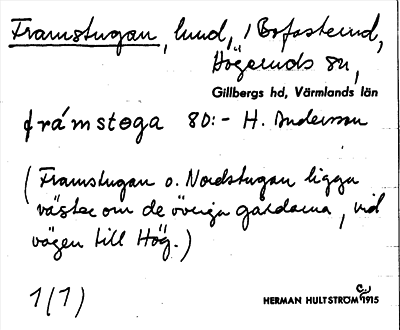 Framstugan, lund, i Bofasterud,
Högeruds sn,
Gillbergs hd, Värmlands län
frámstɵga 80:- H. Andersson
(Framstugan o. Nordstugan ligga
väster om de övriga gårdarna, vid
vägen till Hög.)
1(1)
HERMAN HULTSTRÖM 1915